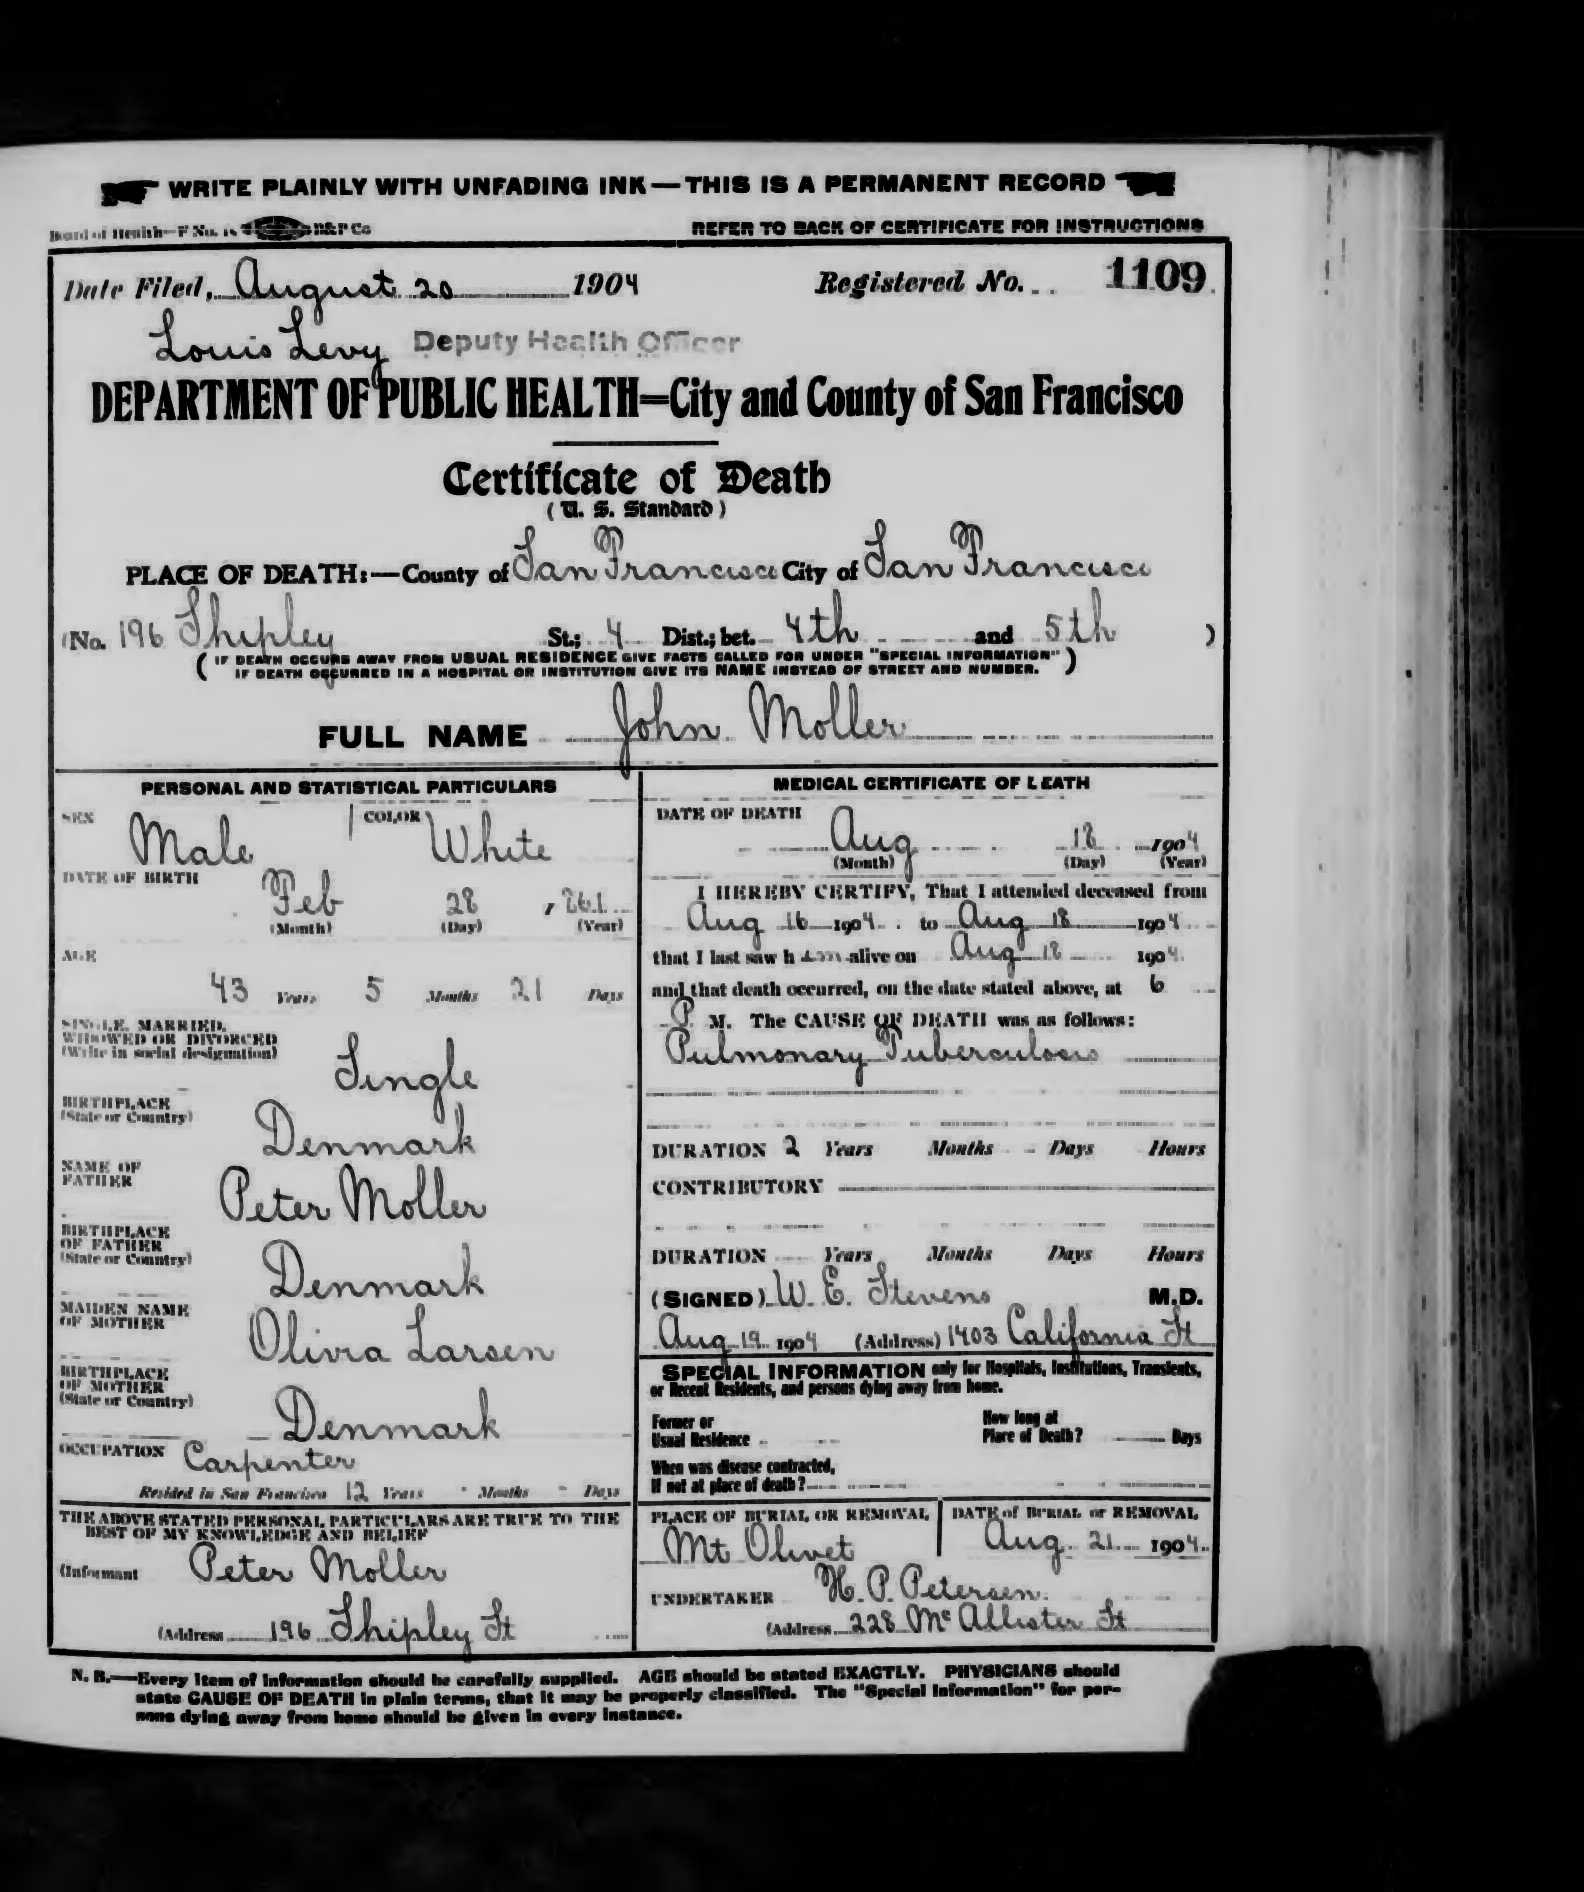 WRITE PLAINLY WITH UNFADING INK—THIS IS A PERMANENT RECORD
Board of Health—F No. B&P Co
REFER TO BACK OF CERTIFICATE FOR INSTRUCTIONS
Date Filed, August 20 1904 Registered No. 1109
Louis Levy Deputy Health Officer
DEPARTMENT OF PUBLIC HEALTH=City and County of San Francisco
Certificate of Death
(U. S. Standard)
PLACE OF DEATH:—County of San Francisco City of San Francisco
(No. 196 Shipley St.; 4 Dist.; bet. 4th and 5th )
( IF DEATH OCCURS AWAY FROM USUAL RESIDENCE GIVE FACTS CALLED FOR UNDER "SPECIAL INFORMATION"
IF DEATH OCCURRED IN A HOSPITAL OR INSTITUTION GIVE ITS NAME INSTEAD OF STREET AND NUMBER. )
FULL NAME John Moller
PERSONAL AND STATISTICAL PARTICULARS
SEX Male COLOR White
DATE OF BIRTH
Feb 28 , 861
(Month) (Day) (Year)
AGE
43 Years 5 Months 21 Days
SINGLE, MARRIED,
WIDOWED OR DIVORCED
(Write in social designation)
Single
BIRTHPLACE
(State or Country)
Denmark
NAME OF
FATHER
Peter Moller
BIRTHPLACE
OF FATHER
(State or Country)
Denmark
MAIDEN NAME
OF MOTHER
Olivia Larsen
BIRTHPLACE
OF MOTHER
(State or Country)
Denmark
OCCUPATION Carpenter
Resided in San Francisco 12 Years - Months - Days
THE ABOVE STATED PERSONAL PARTICULARS ARE TRUE TO THE
BEST OF MY KNOWLEDGE AND BELIEF
(Informant Peter Moller
(Address 196 Shipley St
MEDICAL CERTIFICATE OF DEATH
DATE OF DEATH
Aug 18 1904
(Month) (Day) (Year)
I HEREBY CERTIFY, That I attended deceased from
Aug 16 1904 to Aug 18 1904
that I last saw h im alive on Aug 18 1904
and that death occurred, on the date stated above, at 6
P. M. The CAUSE OF DEATH was as follows:
Pulmonary Tuberculosis
DURATION 2 Years Months - Days Hours
CONTRIBUTORY
DURATION Years Months Days Hours
(SIGNED) W. E. Stevens M.D.
Aug 19 1904 (Address) 1403 California St
SPECIAL INFORMATION only for Hospitals, Institutions, Transients,
or Recent Residents, and persons dying away from home.
Former or
Usual Residence
How long at
Place of Death? Days
When was disease contracted,
If not at place of death?
PLACE OF BURIAL OR REMOVAL
Mt Olivet
DATE of BURIAL or REMOVAL
Aug 21 1904
UNDERTAKER H. P. Petersen
(Address 228 McAllister St
N. B.—Every item of information should be carefully supplied. AGE should be stated EXACTLY. PHYSICIANS should
state CAUSE OF DEATH in plain terms, that it may be properly classified. The "Special Information" for per-
sons dying away from home should be given in every instance.